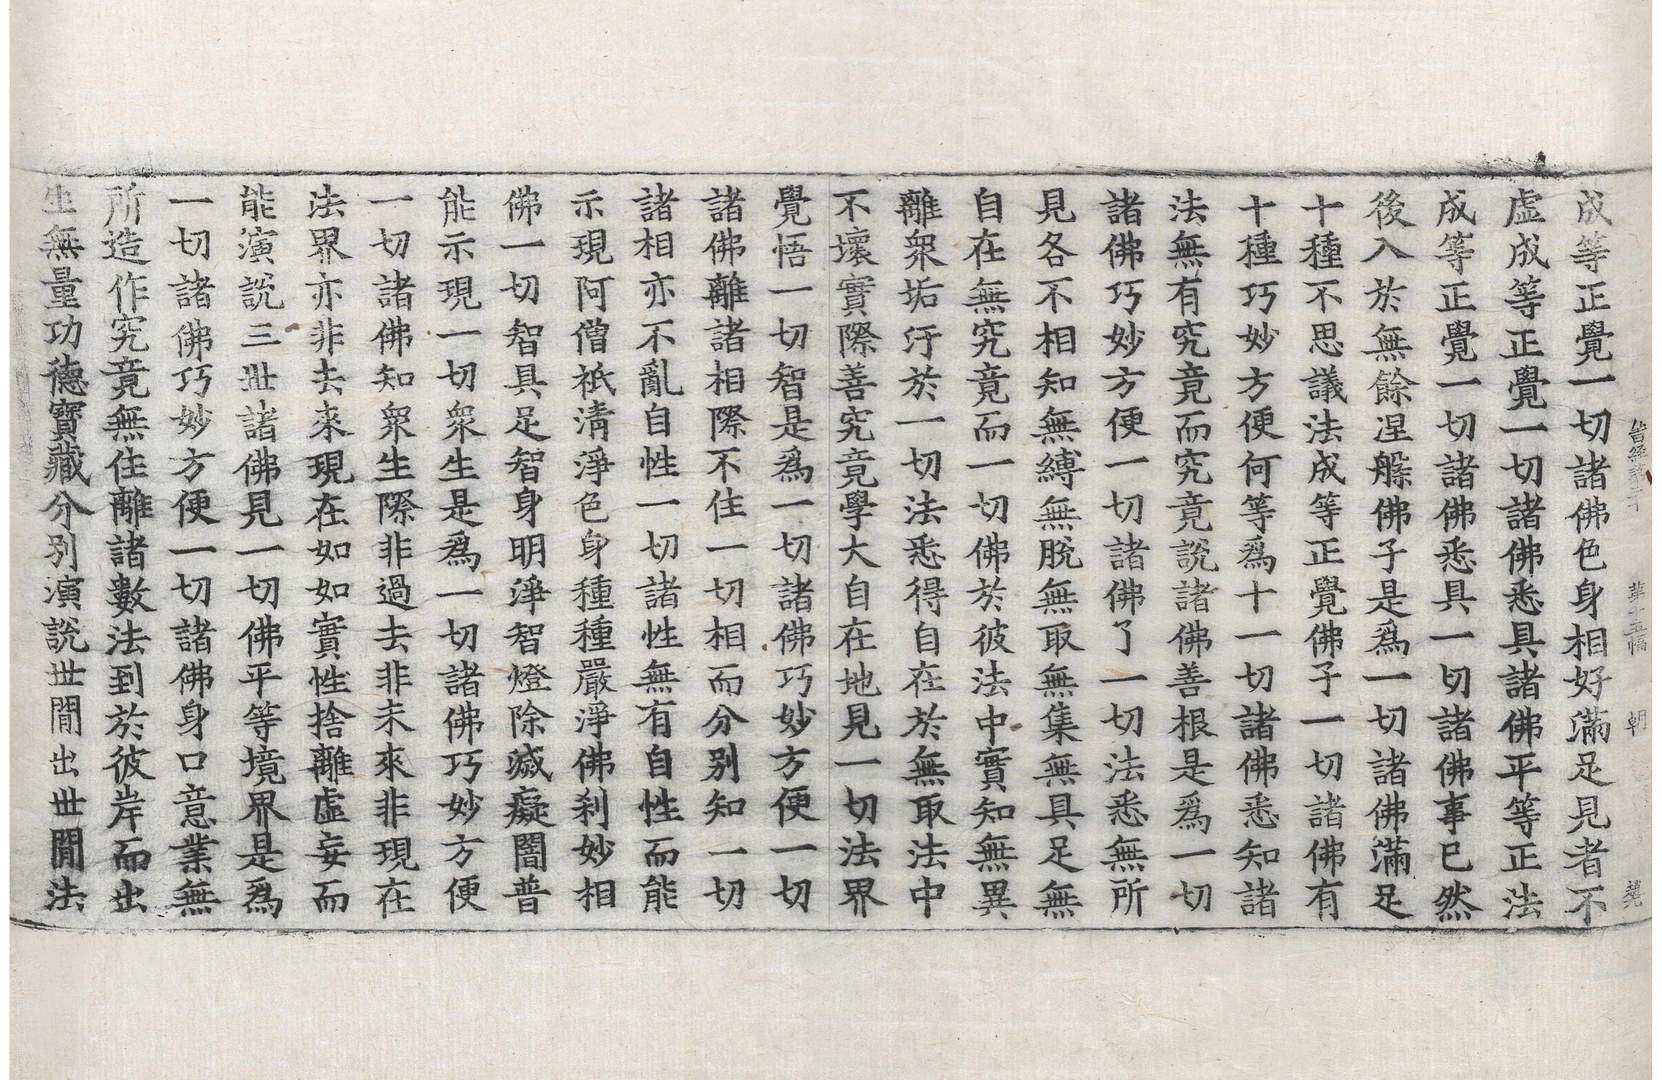 成等正覺一切諸佛色身相好滿足見者不
虛成等正覺一切諸佛悉具諸佛平等正法
成等正覺一切諸佛悉具一切諸佛事已然
後入於無餘涅槃佛子是爲一切諸佛滿足
十種不思議法成等正覺佛子一切諸佛有
十種巧妙方便何等爲十一切諸佛悉知諸
法無有究竟而究竟說諸佛善根是爲一切
諸佛巧妙方便一切諸佛了一切法悉無所
見各不相知無縛無脫無取無集無具足無
自在無究竟而一切佛於彼法中實知無異
離衆垢汙於一切法悉得自在於無取法中
不壞實際善究竟學大自在地見一切法界
覺悟一切智是爲一切諸佛巧妙方便一切
諸佛離諸相際不住一切相而分別知一切
諸相亦不亂自性一切諸性無有自性而能
示現阿僧祇淸淨色身種種嚴淨佛刹妙相
佛一切智具足智身明淨智燈除滅癡闇普
能示現一切衆生是爲一切諸佛巧妙方便
一切諸佛知衆生際非過去非未來非現在
法界亦非去來現在如如實性捨離虛妄而
能演說三世諸佛見一切佛平等境界是爲
一切諸佛巧妙方便一切諸佛身口意業無
所造作究竟無住離諸數法到於彼岸而出
生無量功德寶藏分別演說世間出世間法